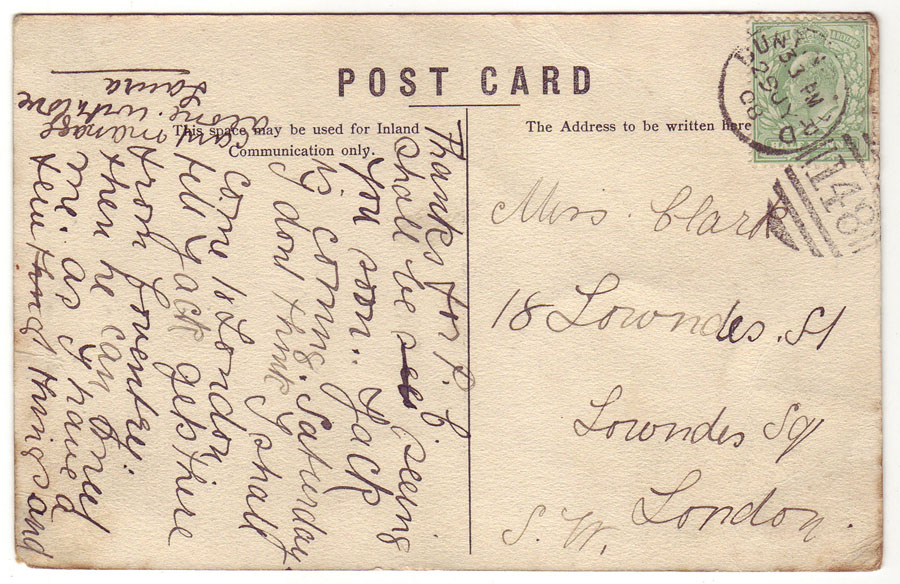 POST CARD
This space may be used for Inland
Communication only.
The Address to be written here
Thanks for P. C.
Shall be see seeing
you soon. Jack
is coming. Saturday.
I dont think I shall
come to London
till Jack gets here
from Coventry:
then he can
me. as I have a
few things and
cant manage
alone. with love
Laura
Miss. Clark
18 Lowndes. St
Lowndes Sq
London.
S. W.
PM
29 JY
08
148